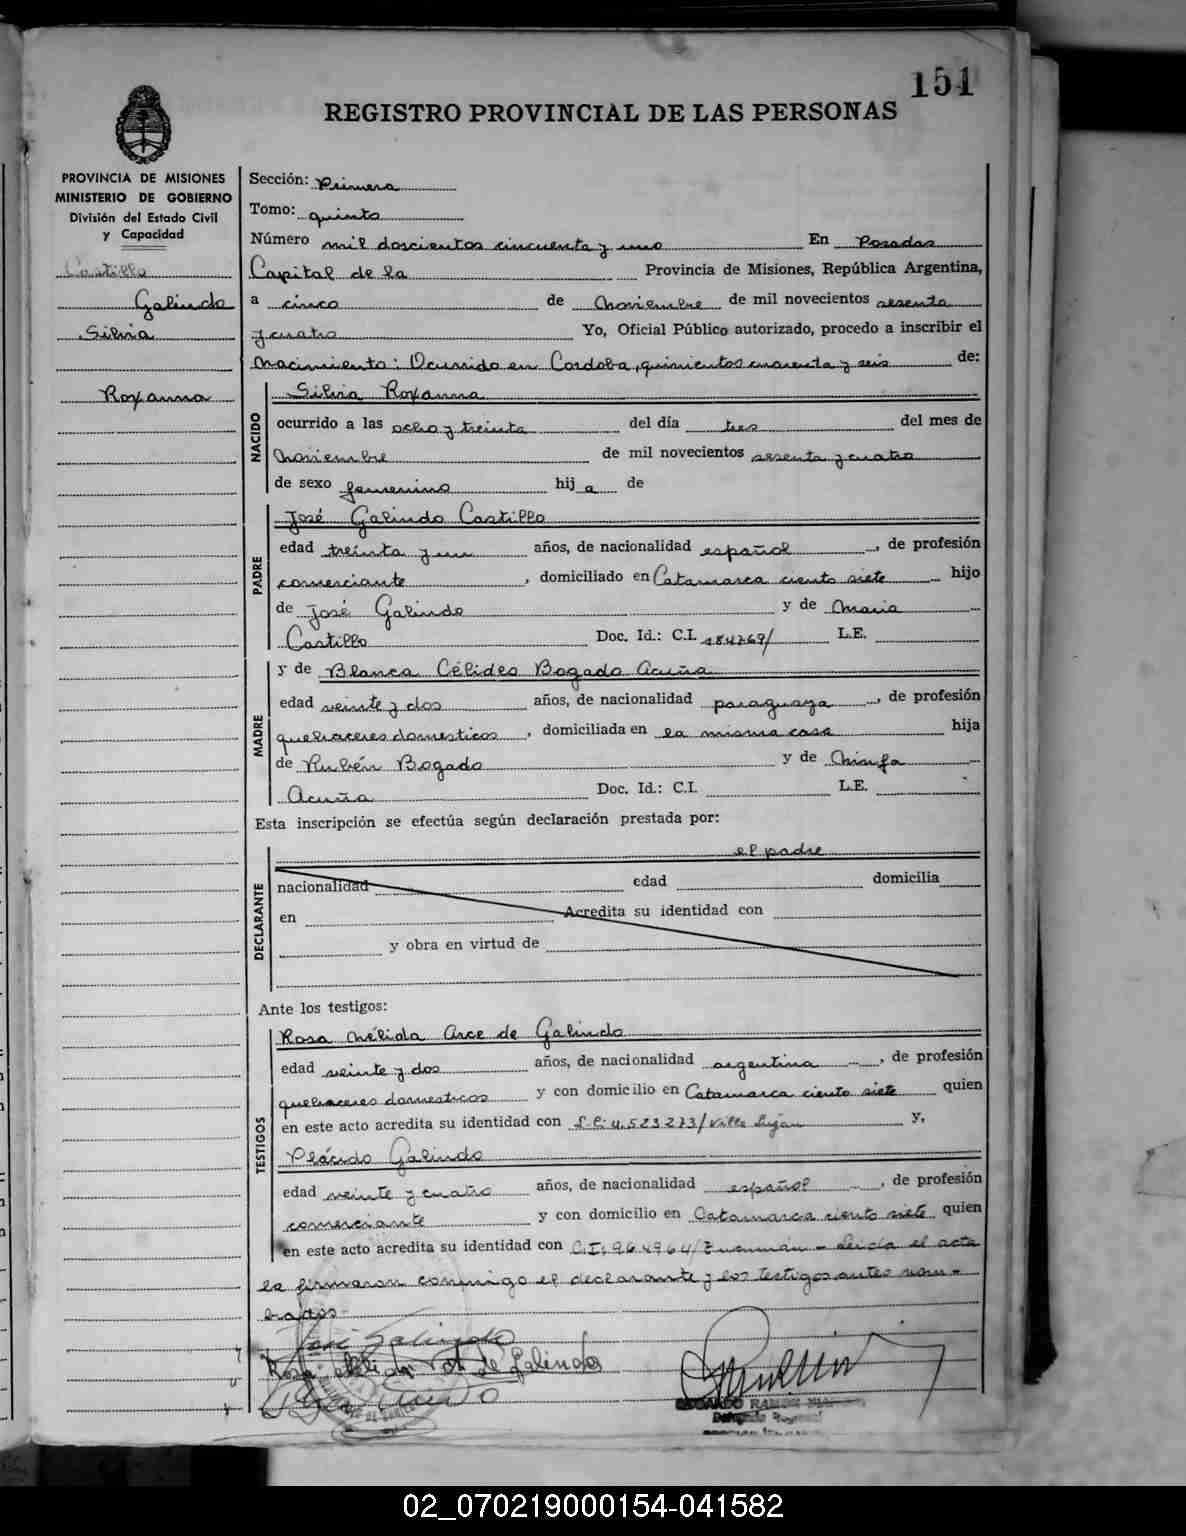 151
REGISTRO PROVINCIAL DE LAS PERSONAS
PROVINCIA DE MISIONES
MINISTERIO DE GOBIERNO
División del Estado Civil
y Capacidad
Castillo
Galindo
Silvia
Roxanna
Sección: Primera
Tomo: quinto
Número mil doscientos cincuenta y uno En Posadas
Capital de la Provincia de Misiones, República Argentina,
a cinco de Noviembre de mil novecientos sesenta
y cuatro Yo, Oficial Público autorizado, procedo a inscribir el
Nacimiento: Ocurrido en Cordoba, quinientos cuarenta y seis de:
NACIDO
Silvia Roxanna
ocurrido a las ocho y treinta del día tres del mes de
Noviembre de mil novecientos sesenta y cuatro
de sexo femenino hij a de
PADRE
José Galindo Castillo
edad treinta y un años, de nacionalidad español, de profesión
comerciante, domiciliado en Catamarca ciento siete hijo
de José Galindo y de Maria
Castillo Doc. Id.: C.I. 184769/ L.E.
MADRE
y de Blanca Célides Bogado Acuña
edad veinte y dos años, de nacionalidad paraguaya, de profesión
quehaceres domesticos, domiciliada en la misma casa hija
de Rubén Bogado y de Ninfa
Acuña Doc. Id.: C.I. L.E.
Esta inscripción se efectúa según declaración prestada por:
DECLARANTE
el padre
nacionalidad edad domicilia
en Acredita su identidad con
y obra en virtud de
Ante los testigos:
TESTIGOS
Rosa Nélida Arce de Galindo
edad veinte y dos años, de nacionalidad argentina, de profesión
quehaceres domesticos y con domicilio en Catamarca ciento siete quien
en este acto acredita su identidad con L.C: 4.523.273/ Villa Luján y,
Plácido Galindo
edad veinte y cuatro años, de nacionalidad español, de profesión
comerciante y con domicilio en Catamarca ciento siete quien
en este acto acredita su identidad con C.I: 964964/ Tucumán - Leída el acta
la firmaron conmigo el declarante y los testigos antes nom-
brados-
José Galindo
Rosa Nelida de Galindo
EDGARDO RAMON
Delegado Regional
02_070219000154-041582